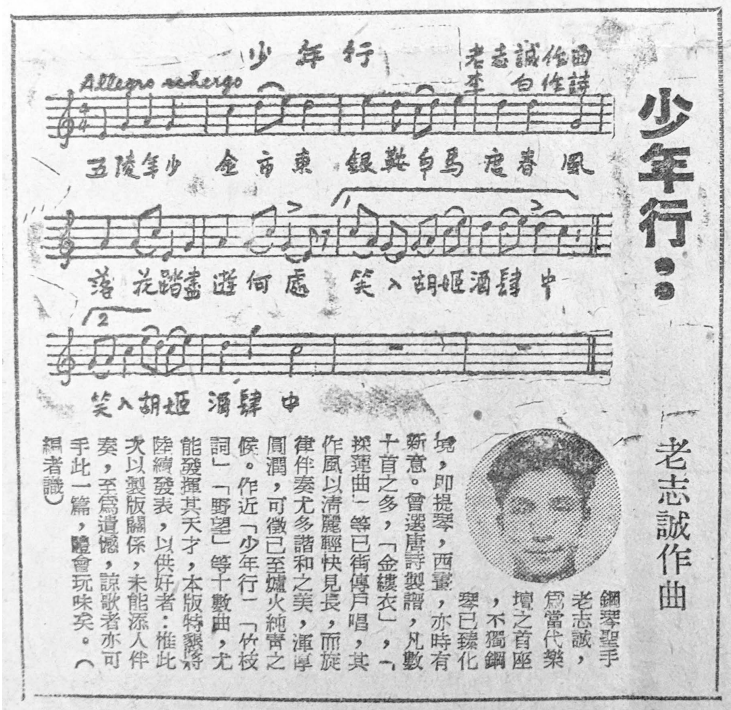 少年行：
老志誠作曲
少年行
老志誠作曲
李白作詩
Allegro scherzo
五陵年少 金市東 銀鞍白馬度春風
落花踏盡遊何處 笑入胡姬酒肆中
2
笑入胡姬酒肆中
鋼琴聖手
老志誠，
爲當代樂
壇之首座
，不獨鋼
琴已臻化
境，即提琴，西簧，亦時有
新意。曾選唐詩製譜，凡數
十首之多，「金縷衣」，「
採蓮曲」等已街傳戶唱，其
作風以清麗輕快見長，而旋
律伴奏尤多諧和之美，渾厚
圓潤，可徵已至爐火純靑之
候。作近「少年行」「竹枝
詞」「野望」等十數曲，尤
能發揮其天才，本版特懇將
陸續發表，以供好者：惟此
次以製版關係，未能添入伴
奏，至爲遺憾，諒歌者亦可
手此一篇，體會玩味矣。（
編者識）